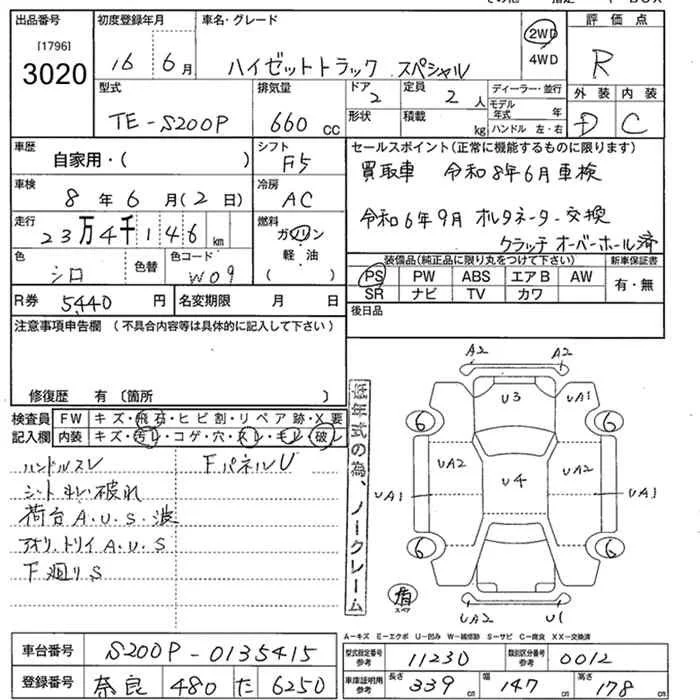 出品番号 初度登録年月 車名・グレード 評価点
[1796]
3020 16 6月 ハイゼットトラック スペシャル 2WD 4WD R
型式 排気量 ドア 定員 ディーラー・並行 外装 内装
TE-S200P 660 CC 2 2 人 モデル年式 年 D C
形状 積載 kg ハンドル 左・右
車歴 シフト セールスポイント(正常に機能するものに限ります)
自家用・( ) F5 買取車 令和8年6月車検
車検 冷房
8年6月(2日) AC
走行 燃料 令和6年9月 オルタネーター交換
23万4千146km ガソリン クラッチオーバーホール済
軽・油
( )
色 色替 色コード 装備品(純正品に限り丸をつけて下さい) 新車保証書
シロ W09 PS PW ABS エアB AW 有・無
SR ナビ TV カワ
R券 5,440円 名変期限 月 日 後日品
注意事項申告欄 (不具合内容等は具体的に記入して下さい)
修復歴 有 (箇所 )
検査員 FW キズ・飛石・ヒビ割・リペア跡・X要
記入欄 内装 キズ・汚レ・コゲ・穴・スレ・キレ・破レ
ハンドルスレ FパネルU
シートキレ破れ
荷台A.U.S.波
アオリ.トリイA.U.S
下廻りS
低年式の為、ノークレーム
A2 A2
U3 UA1
6 6
UA2 UA2
UA1 U4 UA1
6 6
スペア
UA2 U1
A-キズ E-エクボ U-凹み W-補修跡 S-サビ C-腐食 XX-交換済
車台番号 S200P-0135415 型式指定番号参考 11230 類別区分番号参考 0012
登録番号 奈良 480 た 6250 車庫証明用参考 長さ 339 cm 幅 147 cm 高さ 178 cm